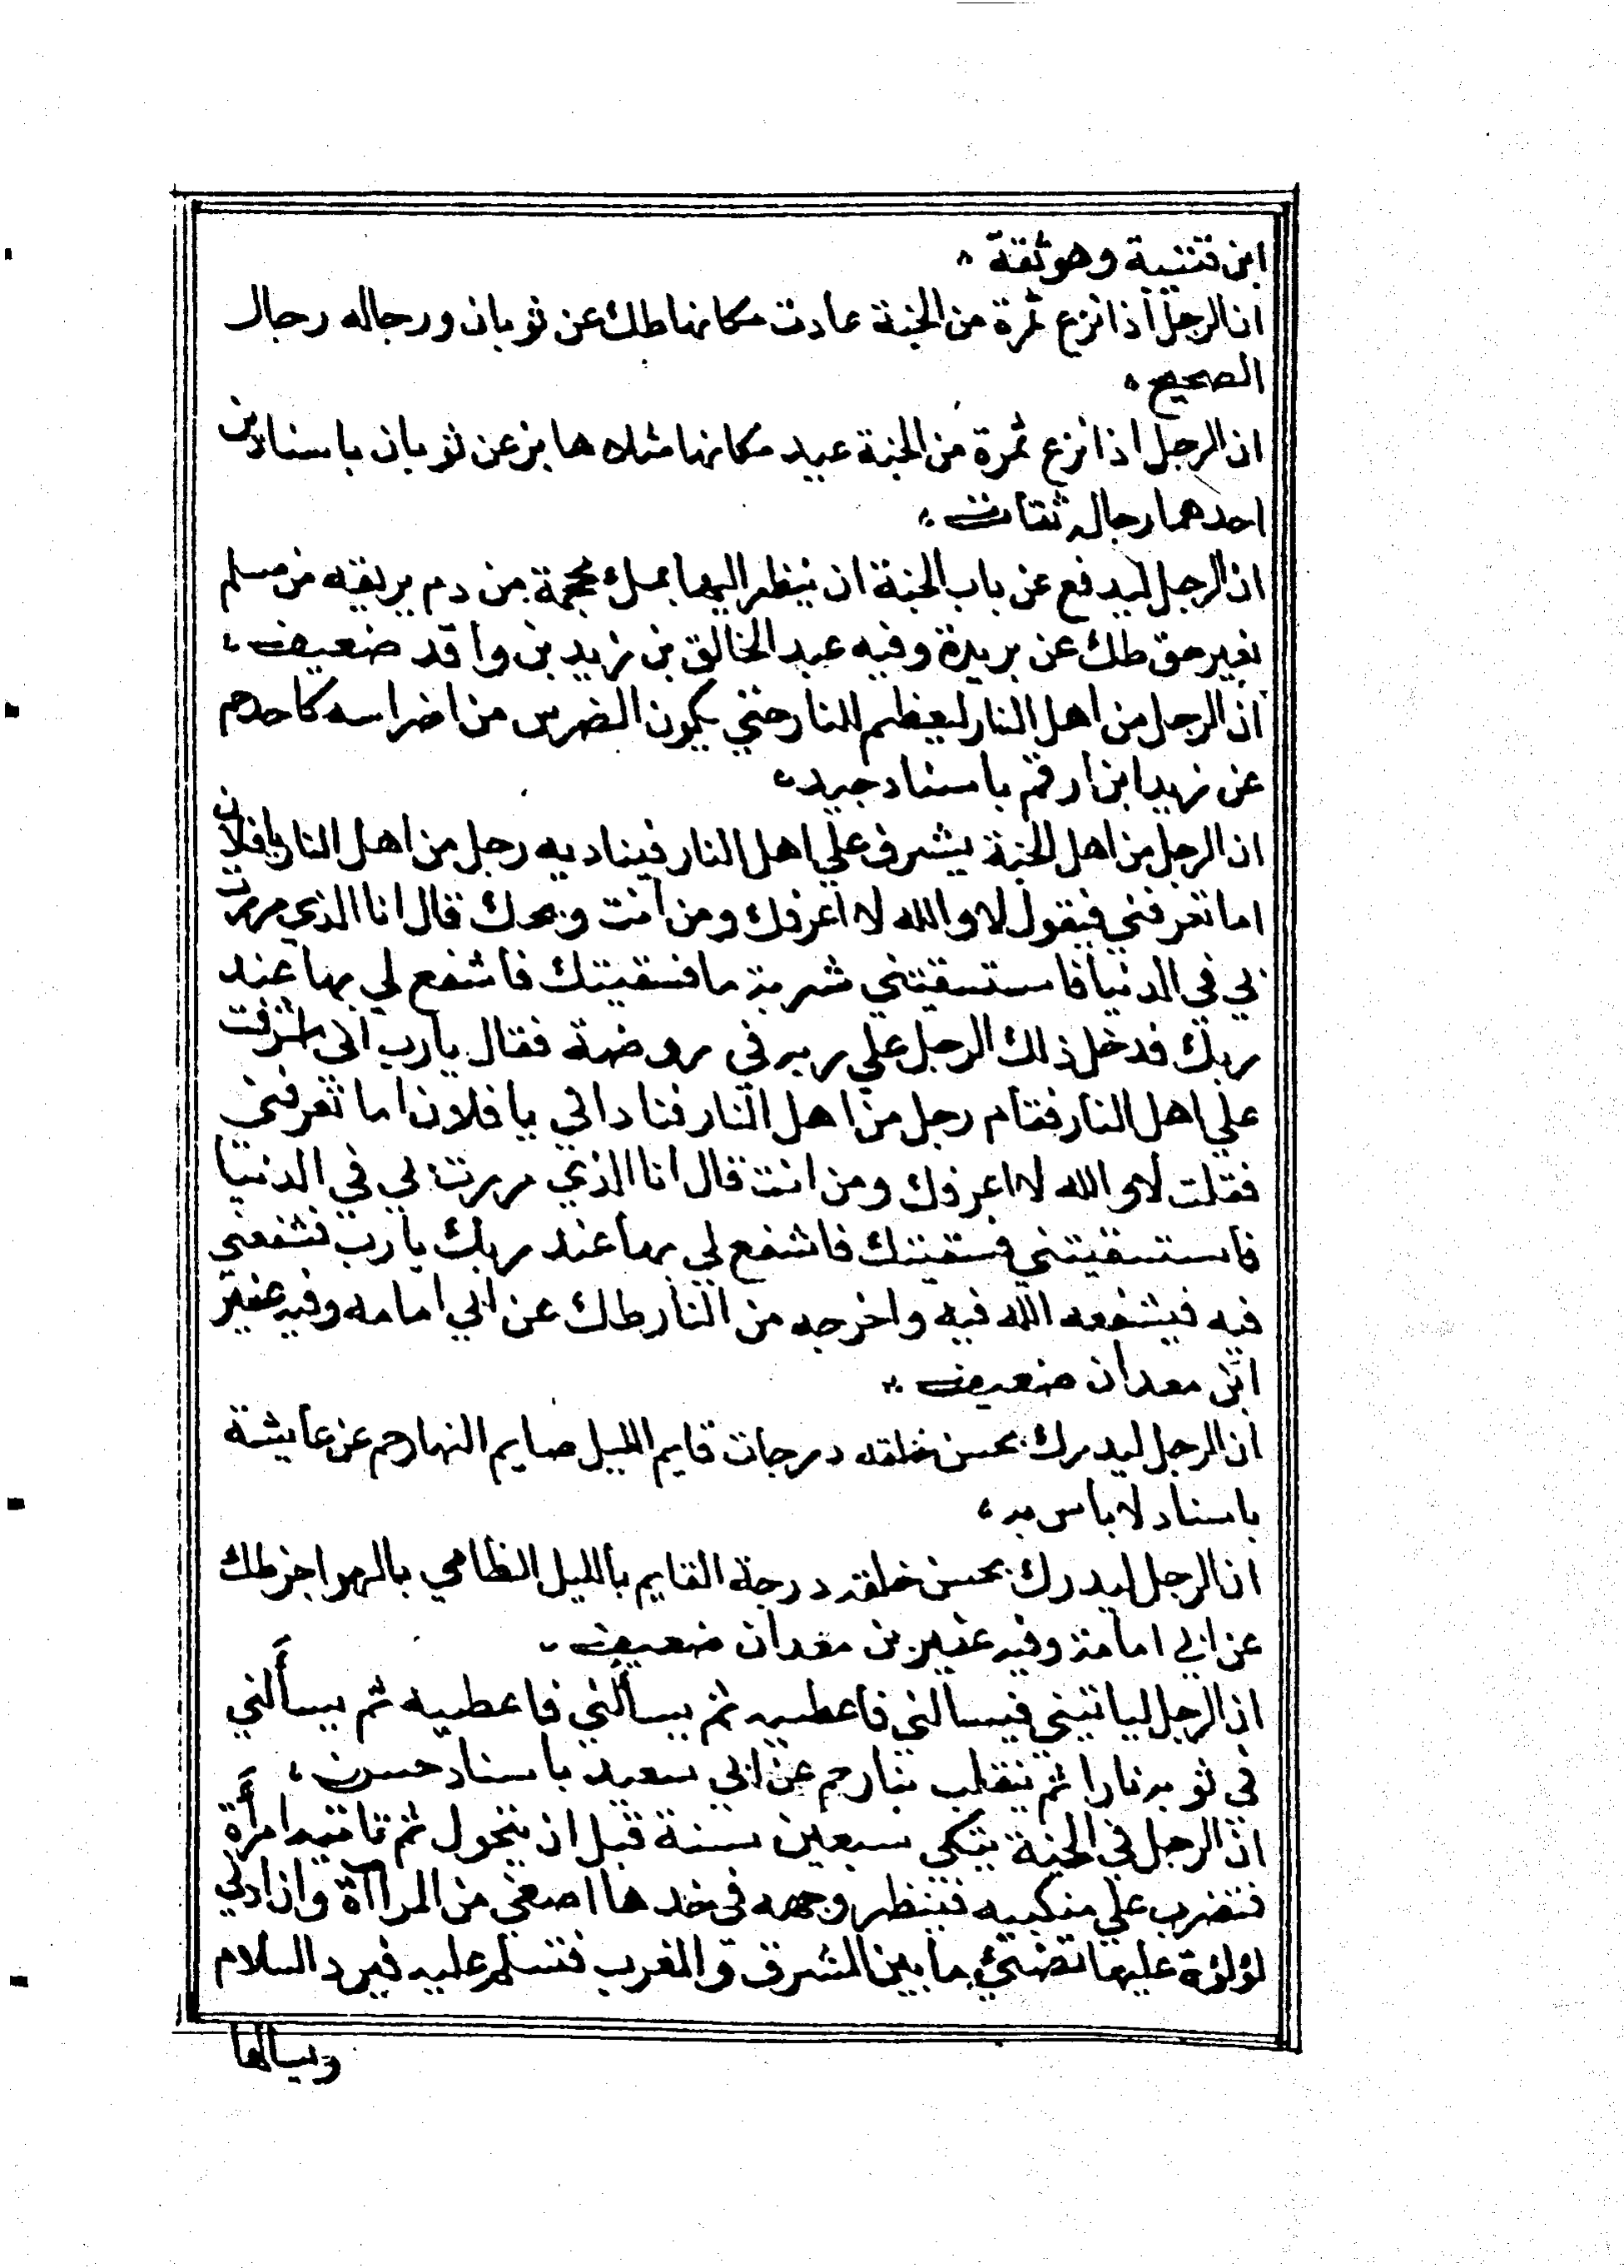 ابن قتيبة وهو ثقة ،
ان الرجل اذا نزع ثمرة من الجنة عادت مكانها طك عن ثوبان ورجاله رجال
الصحيح ،
ان الرجل اذا نزع ثمرة من الجنة عيد مكانها مثلاها بز عن ثوبان باسنادين
احدهما رجاله ثقات ،
ان الرجل ليدفع عن باب الجنة ان ينظر اليها بملء محجمة من دم يريقه من مسلم
بغير حق طك عن بريدة وفيه عبد الخالق بن زيد بن واقد ضعيف ،
ان الرجل من اهل النار ليعظم للنار حتي يكون الضرس من اضراسه كاحد حم
عن زيد ابن ارقم باسناد جيد ،
ان الرجل من اهل الجنة يشرف علي اهل النار فيناديه رجل من اهل النار يا فلان
اما تعرفني فيقول لا والله لا اعرفك ومن انت ويحك قال انا الذي مررت
بي في الدنيا فاستسقيتني شربة ما فسقيتك فاشفع لي بها عند
ربك فدخل ذلك الرجل علي ربه في روضة فقال يا رب اني اشرفت
علي اهل النار فقام رجل من اهل النار فناداني يا فلان اما تعرفني
فقلت لا والله لا اعرفك ومن انت قال انا الذي مررت بي في الدنيا
فاستسقيتني فسقيتك فاشفع لي بها عند ربك يا رب فشفعني
فيه فيشفعه الله فيه واخرجه من النار طك عن ابي امامه وفيه عفير
ابن معدان ضعيف ،
ان الرجل ليدرك بحسن خلقه درجات قايم الليل صايم النهار حم عن عايشة
باسناد لا باس به ،
ان الرجل ليدرك بحسن خلقه درجة القايم بالليل الظامي بالهواجر طك
عن ابي امامة وفيه عفير بن معدان ضعيف ،
ان الرجل لياتيني فيسالني فاعطيه ثم يسألني فاعطيه ثم يسألني
في ثوبه نارا ثم ينقلب بنار حم عن ابي سعيد باسناد حسن ،
ان الرجل في الجنة يتكي سبعين سنة قبل ان يتحول ثم تاتيه امرأة
فتضرب علي منكبيه فينظر وجهه في خدها اصفي من المرآة وان ادني
لؤلؤة عليها تضئ ما بين المشرق والمغرب فتسلم عليه فيرد السلام
ويسالها